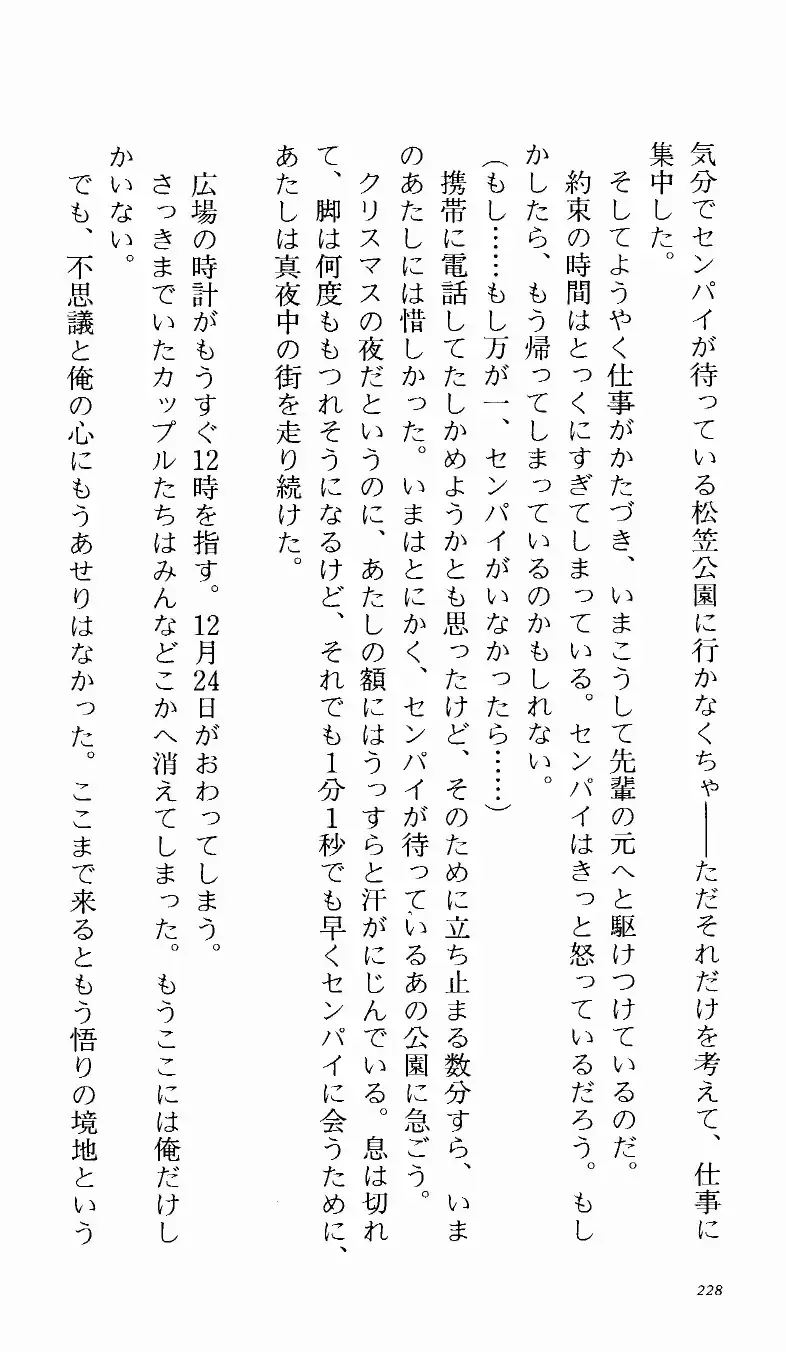 気分でセンパイが待っている松笠公園に行かなくちゃ――ただそれだけを考えて、仕事に
集中した。
そしてようやく仕事がかたづき、いまこうして先輩の元へと駆けつけているのだ。
約束の時間はとっくにすぎてしまっている。センパイはきっと怒っているだろう。もし
かしたら、もう帰ってしまっているのかもしれない。
(もし……もし万が一、センパイがいなかったら……)
携帯に電話してたしかめようかとも思ったけど、そのために立ち止まる数分すら、いま
のあたしには惜しかった。いまはとにかく、センパイが待っているあの公園に急ごう。
クリスマスの夜だというのに、あたしの額にはうっすらと汗がにじんでいる。息は切れ
て、脚は何度ももつれそうになるけど、それでも1分1秒でも早くセンパイに会うために、
あたしは真夜中の街を走り続けた。
広場の時計がもうすぐ12時を指す。12月24日がおわってしまう。
さっきまでいたカップルたちはみんなどこかへ消えてしまった。もうここには俺だけし
かいない。
でも、不思議と俺の心にもうあせりはなかった。ここまで来るともう悟りの境地という
228